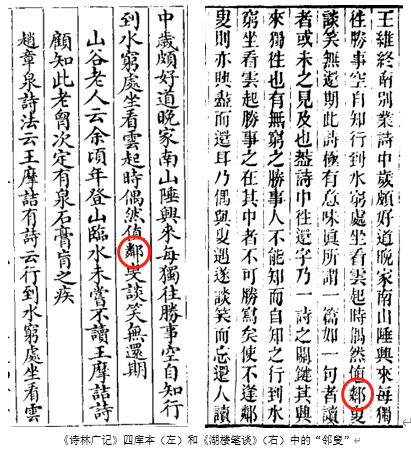 中歳頗好道晚家南山陲興來每獨往勝事空自知行
到水窮處坐看雲起時偶然值鄰叟談笑無還期
山谷老人云余頃年登山臨水未嘗不讀王摩詰詩
顧知此老胷次定有泉石膏肓之疾
趙章泉詩法云王摩詰有詩云行到水窮處坐看雲
王維終南別業詩中歲頗好道晚家南山陲興來每獨
往勝事空自知行到水窮處坐看雲起時偶然值鄰叟
談笑無還期此詩極有意味眞所謂一篇如一句者讀
者或未之見及也蓋詩中往還字乃一詩之關鍵其興
來獨往也有無窮之勝事人不能知而自知之行到水
窮坐看雲起勝事之在其中者不可勝寫矣使不逢鄰
叟則亦興盡而還耳乃偶與叟遇遂談笑而忘還人讀
《诗林广记》四库本（左）和《湖楼笔谈》（右）中的“邻叟”